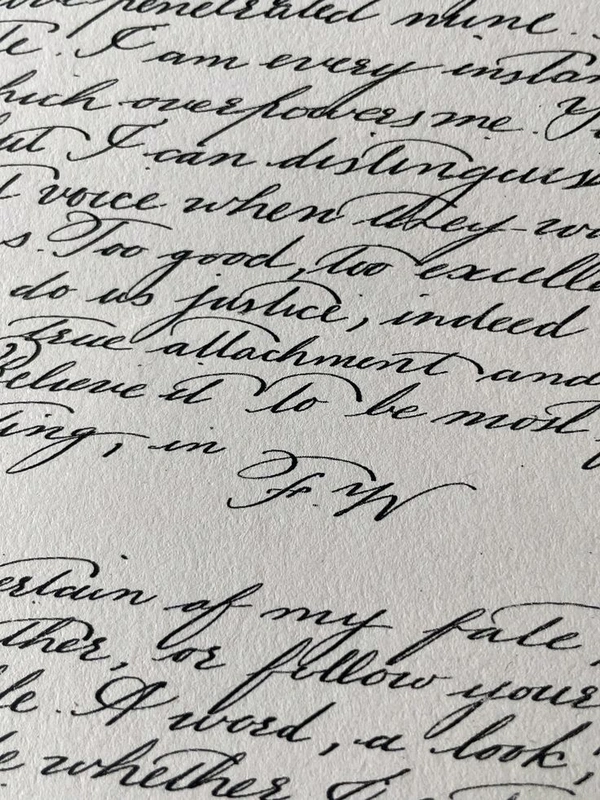 penetrated mine.
te. I am every instan
hich overpowers me. Yo
but I can distinguish
t voice when they wo
s. Too good, too excelle
do us justice, indeed
true attachment and
Believe it to be most
ling, in
F. W
ertain of my fate,
ther, or follow your
le. A word, a look,
whether I